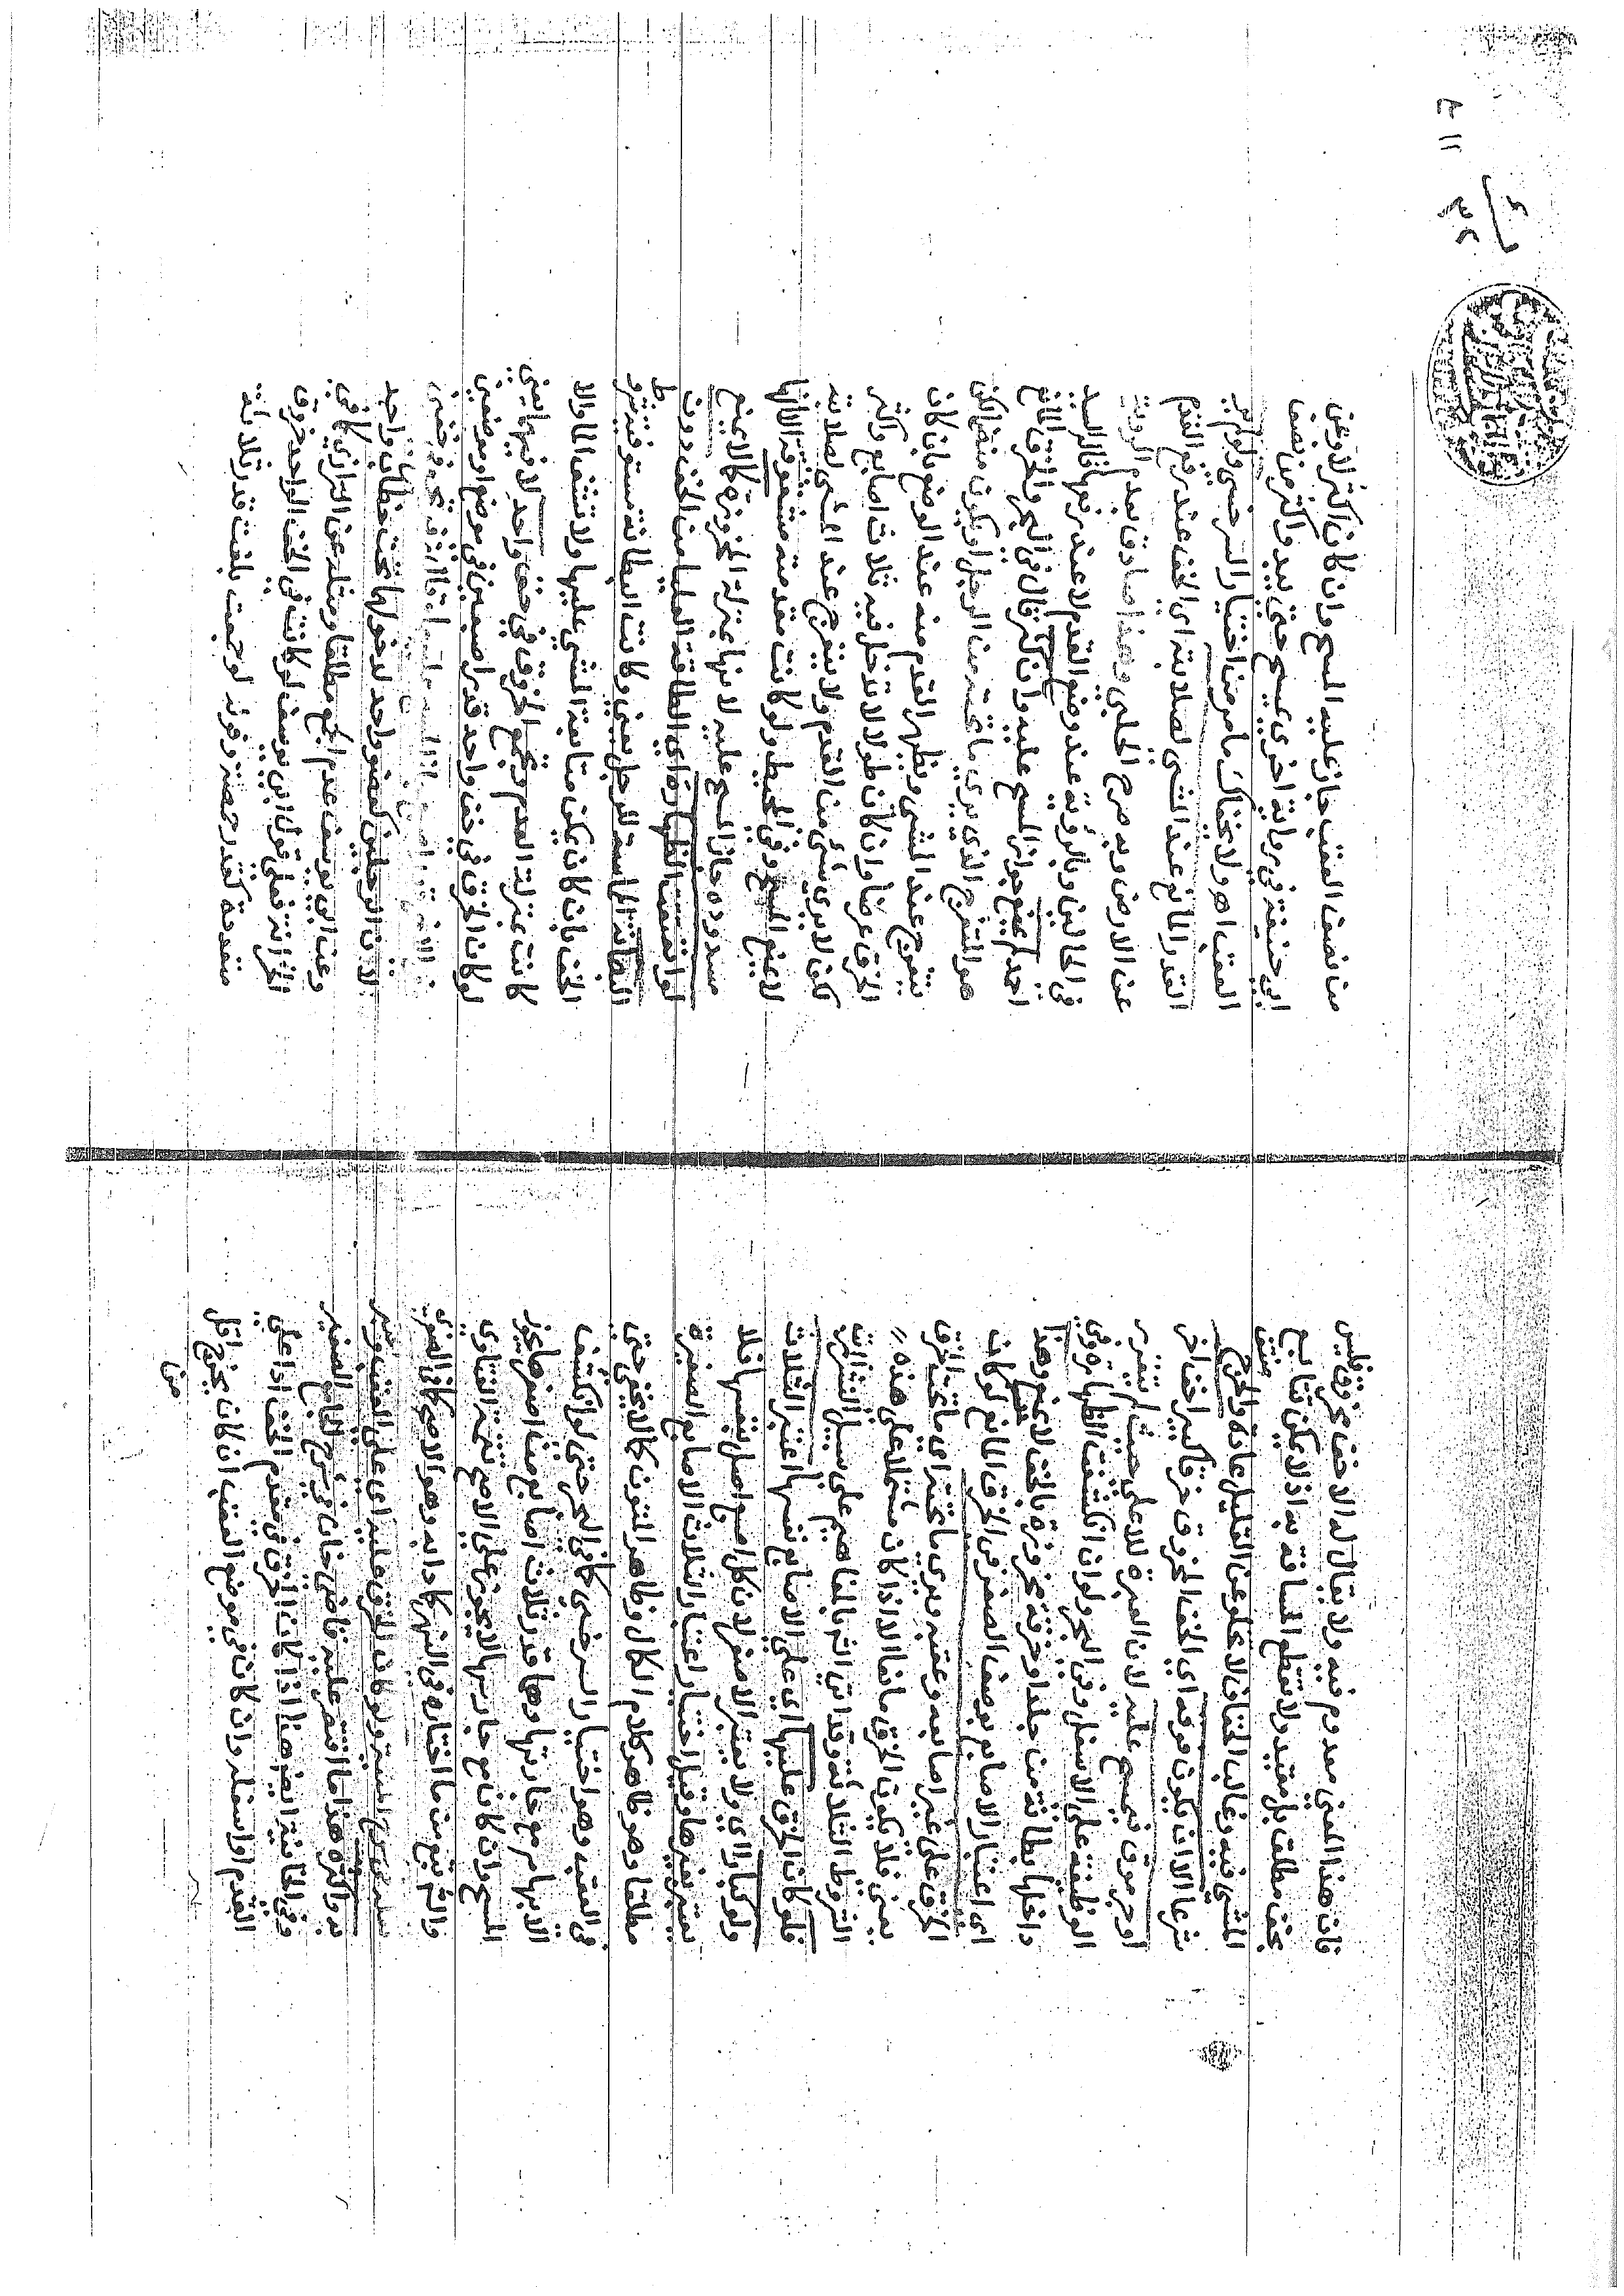 فان هذا المعنى معدوم فيه ولا يقال له الا خف مخروق فليس
بخف مطلق بل مقيد ولا يقطع المسافة به اذ لا يمكن تتابع
المشي فيه وغالب الخفاف لا تخلو عن القليل عادة والحرج منتف
شرعا الا ان يكون فوقه اي الخف المخروق خرقا كبيرا خف اخر
او جرموق فيمسح عليه لان العبرة للاعلى حيث لم تتقرر
الوظيفة على الاسفل وفي البحر ولو ان انكشفت الظهارة وفي
داخلها بطانة من جلد او خرقة مخروزة بالخف لا يمنع وهذا
اي اعتبار الاصابع بوصف الصغر في الخرق المانع لو كان
الخرق على غير اصابعه وعقبه ويرى ما تحته اي ما تحت الخرق
يعني فلا يكون الخرق مانعا الا اذا كان مشتملا على هذه
الشروط الثلاثة وقد اتى اليه بالمفاهيم على سبيل النشر المرتب
فلو كان الخرق عليها اي على الاصابع نفسها اعتبر الثلاث
ولو كبارا اي ولا يعتبر الاصغر لان كل اصبع اصل بنفسها فلا
يعتبر بغيرها وقيل اختيار اعتبار الثلاث الاصابع الصغيرة
مطلقا وهو ظاهر كلام الكمال وظاهر المتون كما لا يخفى حتى
في العقب وهو اختيار السرخسي كما في البحر حتى لو انكشف
الابهام مع جارتها وهما قدر ثلاث اصابع من اصغرها يجوز
المسح وان كان مع جارتيها لا يجوز على الاصح تتمة الفتاوى
والشرح تبع من ما اختاره في النهر كما دابه وهو الاصح كما في
ستر ولو كان الخرق عليه اي على العقب
بدو اكثره هذا ما اقتصر عليه قاضي خان في شرح الجامع الصغير
وفي الخانية ايضا هذا اذا كان الخرق في مقدم الخف او اعلى
القدم او اسفله وان كان في موضع العقب ان كان يخرج اقل
من
من نصف العقب جاز عليه المسح وان كان اكثر لا وعن
ابي حنيفة في رواية اخرى يمسح حتى يبدو اكثر من نصف
العقب اهـ ولا يخفاك ما مر من اختيار السرخسي ولو لم ير
القدر المانع عند المشي لصلابته اي الخف عند رفع القدم
عن الارض وبه صرح الحلبي وهذا صادق بعدم الرؤية
في الحالين وبالرؤية عند وضع القدم لا عند رفعها قاله السيد
احمد لم يمنع جواز المسح عليه وان كثر قال في البحر والخرق المانع
هو المنفرج الذي يرى ما تحته من الرجل او يكون منضما لكن
ينفرج عند المشي ويظهر القدم منه عند الوضع بان كان
الخرق عرضا وان كان طولا لا تدخل فيه ثلاث اصابع واكثر
لكن لا يرى شيء من القدم ولا ينفرج عند المشي لصلابته
لا يمنع المسح وفي المحيط ولو كانت مقدمته مشقوقة الا انها
مسدودة جاز المسح عليه لانها بمنزلة المخروزة كما لا يمنع
لو انفتقت الظهارة اي الطاقة العليا من الخف دون
البطانة الماسة للرجل يعني وكانت البطانة مستوفية شروط
الخف بان كان يمكن متابعة المشي عليها ولا تنشف الماء والا
كانت بمنزلة العدم وتجمع الخروق في خف واحد لا فيهما يعني
لو كان الخرق في خف واحد قدر اصبعين في موضع او موضعين
لان الرجلين كعضو واحد لدخولهما تحت خطاب واحد
وعن ابي يوسف عدم الجمع مطلقا ومثله عن الرازي كما في
الخزانة فعلى قول ابي يوسف لو كانت في الخف الواحد خروق
متعددة كقدر حمصة وفولة لو جمعت بلغت قدر ثلاثة